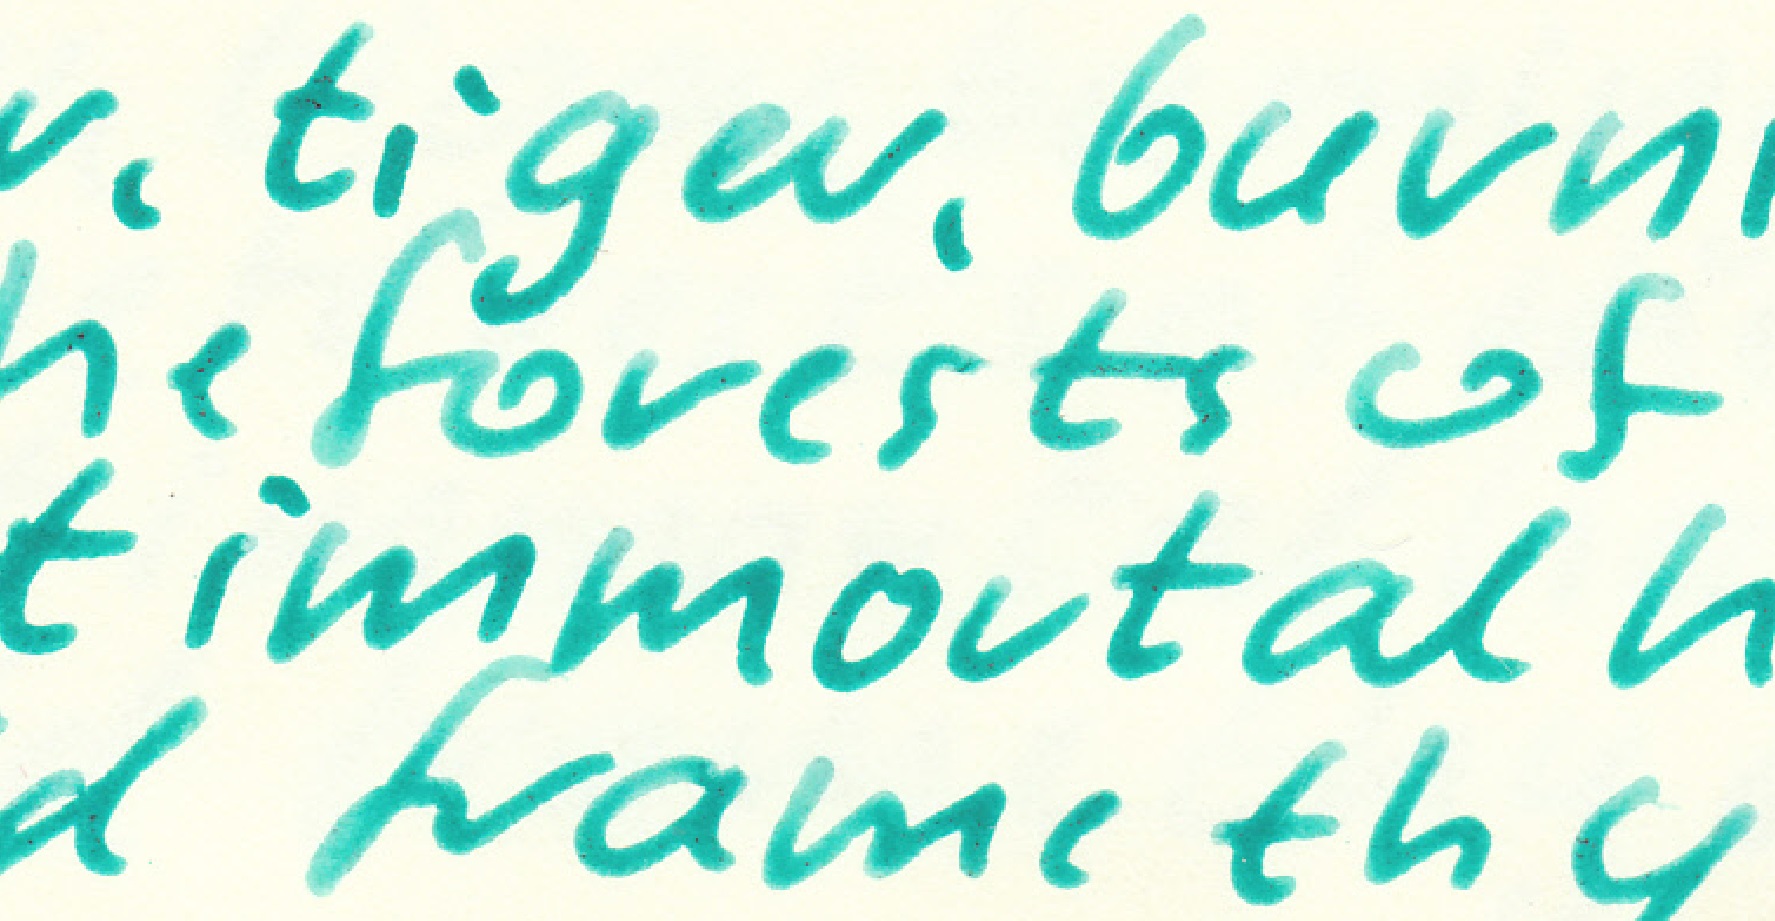 r, tiger, burni
he forests of
t immortal h
d frame thy